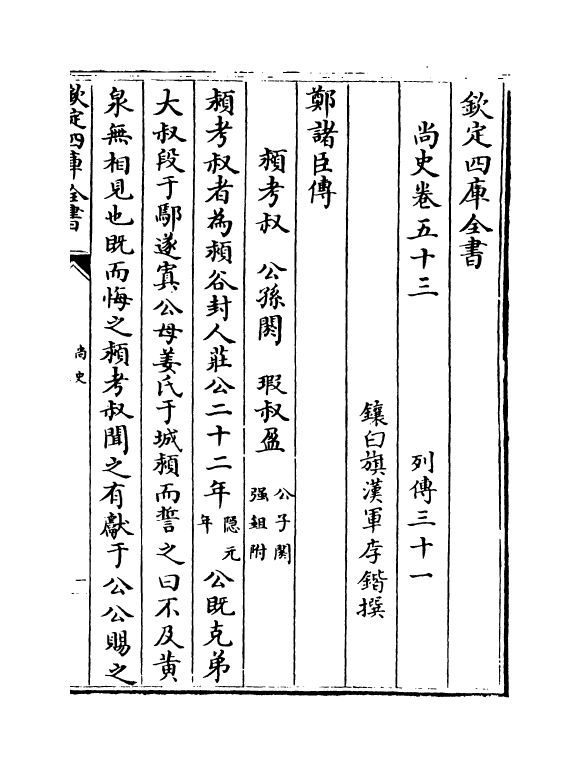 欽定四庫全書
尚史卷五十三　列傳三十一
鑲白旗漢軍李鍇撰
鄭諸臣傳
穎考叔　公孫閼　瑕叔盈　公子閼
强鉏附
穎考叔者為穎谷封人莊公二十二年隠元
年公既克弟
大叔段于鄢遂寘公母姜氏于城穎而誓之曰不及黄
泉無相見也既而悔之穎考叔聞之有獻于公公賜之
欽定四庫全書
尚史
一